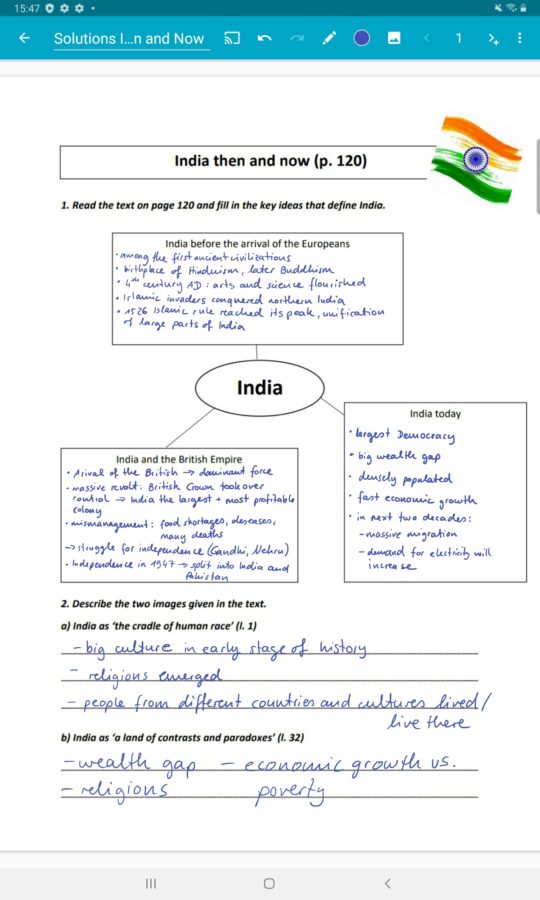 15:47
Solutions I...n and Now
1
India then and now (p. 120)
1. Read the text on page 120 and fill in the key ideas that define India.
India before the arrival of the Europeans
• among the first ancient civilizations
• birthplace of Hinduism, later Buddhism
• 4th century AD : arts and science flourished
• Islamic invaders conquered northern India
• 1526 Islamic rule reached its peak, unification
of large parts of India
India
India and the British Empire
• Arival of the British → dominant force
• massive revolt: British Crown took over
control → India the largest + most profitable
colony
• mismanagement: food shortages, deseases,
many deaths
→ struggle for independence (Gandhi, Nehru)
• Independence in 1947 → split into India and
Pakistan
India today
• largest Democracy
• big wealth gap
• densely populated
• fast economic growth
• in next two decades:
- massive migration
- demand for electricity will
increase
2. Describe the two images given in the text.
a) India as ‘the cradle of human race’ (l. 1)
- big culture in early stage of history
- religions emerged
- people from different countries and cultures lived/
live there
b) India as ‘a land of contrasts and paradoxes’ (l. 32)
- wealth gap - economic growth vs.
- religions poverty